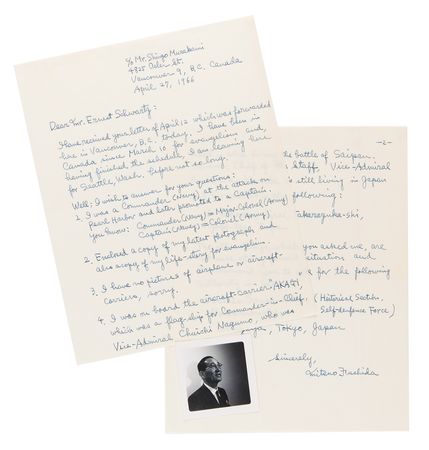 c/o Mr. Shingo Murakami
4925 St.
Vancouver 9, B.C. Canada
April 27, 1966
Dear Mr. Ernest Schwartz:
I have received your letter of April 12 which was forwarded
here in Vancouver, B.C. today. I have been in
Canada since March 10 for evangelism and,
having finished the schedule, I am leaving here
for Seattle, Wash. before not so long.
Well: I wish to answer for your questions:
1. I was a Commander (Navy) at the attack on
Pearl Harbor and later promoted to a Captain.
you know: Commander (Navy) = Major-Colonel (Army)
Captain (Navy) = Colonel (Army)
2. Enclosed a copy of my latest photograph and
also a copy of my life-story for evangelism.
3. I have no pictures of airplane or aircraft-
carriers, sorry.
4. I was on board the aircraft-carrier "AKAGI,"
which was a flag-ship for Commander-in-Chief,
Vice-Admiral Chuichi Nagumo, who was
-2-
the battle of Saipan.
Staff, Vice-Admiral
is still living in Japan
following:
Takarazuka-shi,
you asked me, are
situation and
for the following
(Historical Section,
Self-defense Force)
Tokyo, Japan
Sincerely,
Mitsuo Fuchida